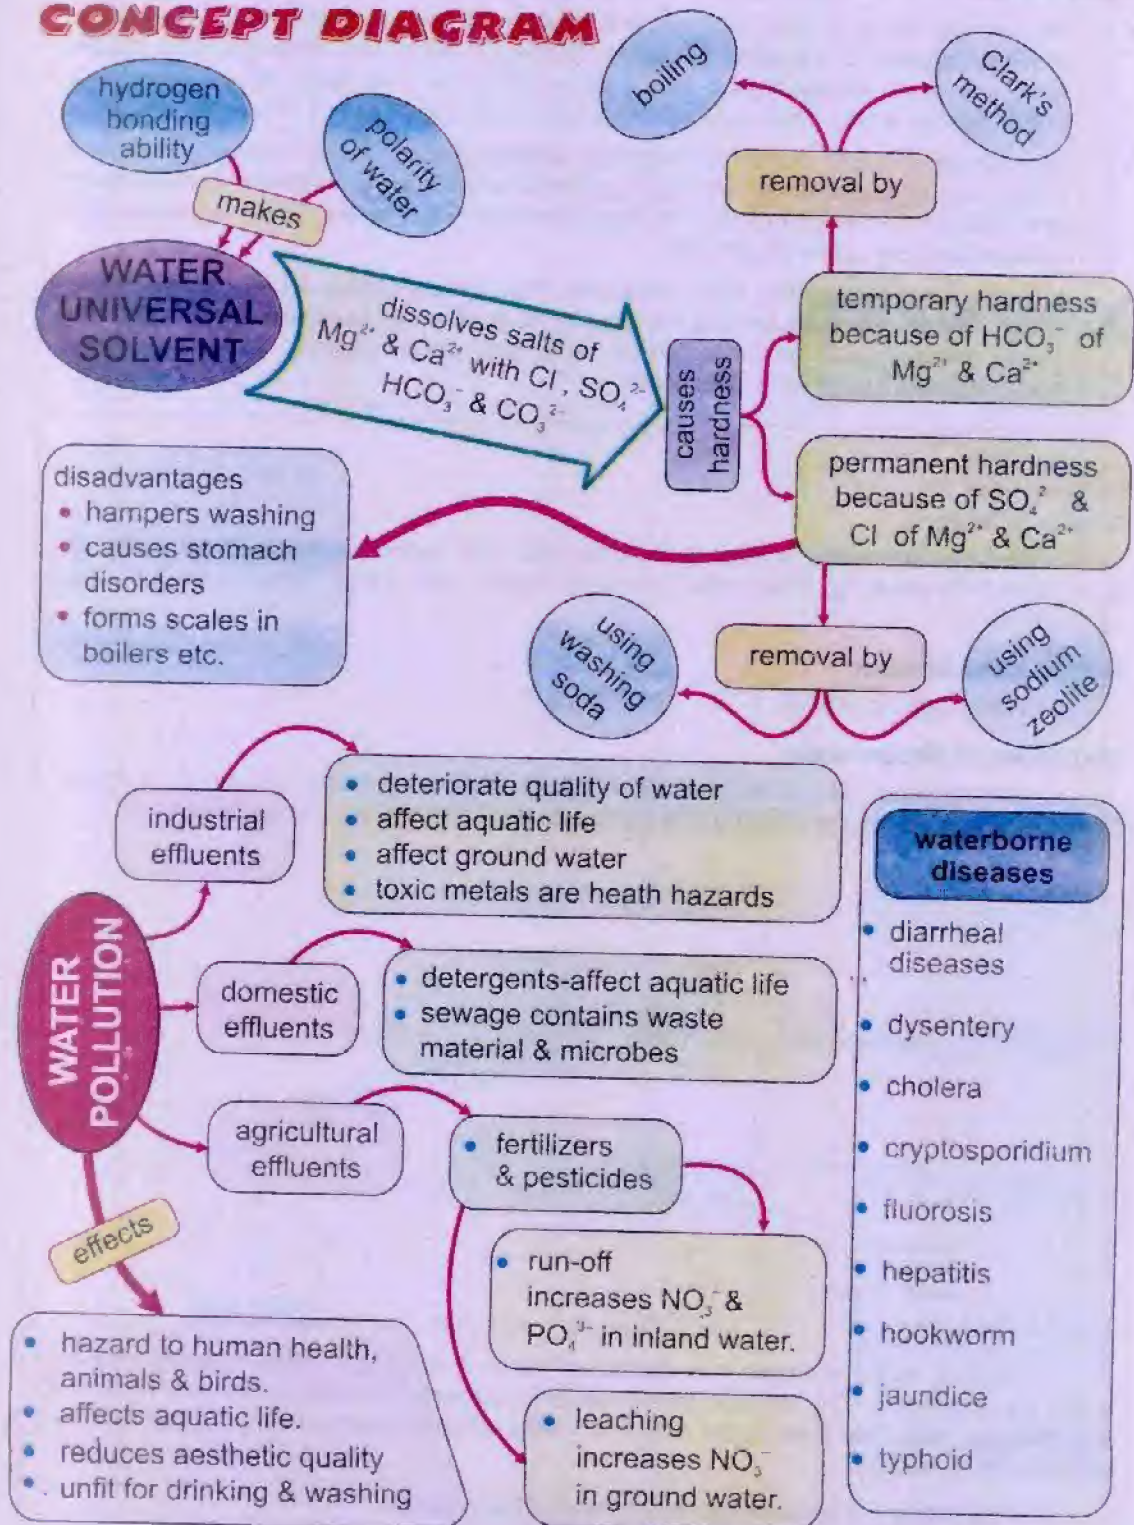 CONCEPT DIAGRAM
hydrogen
bonding
ability
polarity
of water
makes
WATER
UNIVERSAL
SOLVENT
dissolves salts of
Mg²⁺ & Ca²⁺ with Cl, SO₄²⁻
HCO₃⁻ & CO₃²⁻
causes
hardness
boiling
Clark's
method
removal by
temporary hardness
because of HCO₃⁻ of
Mg²⁺ & Ca²⁺
permanent hardness
because of SO₄² &
Cl of Mg²⁺ & Ca²⁺
disadvantages
• hampers washing
• causes stomach
disorders
• forms scales in
boilers etc.
using
washing
soda
removal by
using
sodium
zeolite
WATER
POLLUTION
industrial
effluents
• deteriorate quality of water
• affect aquatic life
• affect ground water
• toxic metals are heath hazards
domestic
effluents
• detergents-affect aquatic life
• sewage contains waste
material & microbes
agricultural
effluents
• fertilizers
& pesticides
• run-off
increases NO₃⁻ &
PO₄³⁻ in inland water.
• leaching
increases NO₃⁻
in ground water.
effects
• hazard to human health,
animals & birds.
• affects aquatic life.
• reduces aesthetic quality
• unfit for drinking & washing
waterborne
diseases
• diarrheal
diseases
• dysentery
• cholera
• cryptosporidium
• fluorosis
• hepatitis
• hookworm
• jaundice
• typhoid